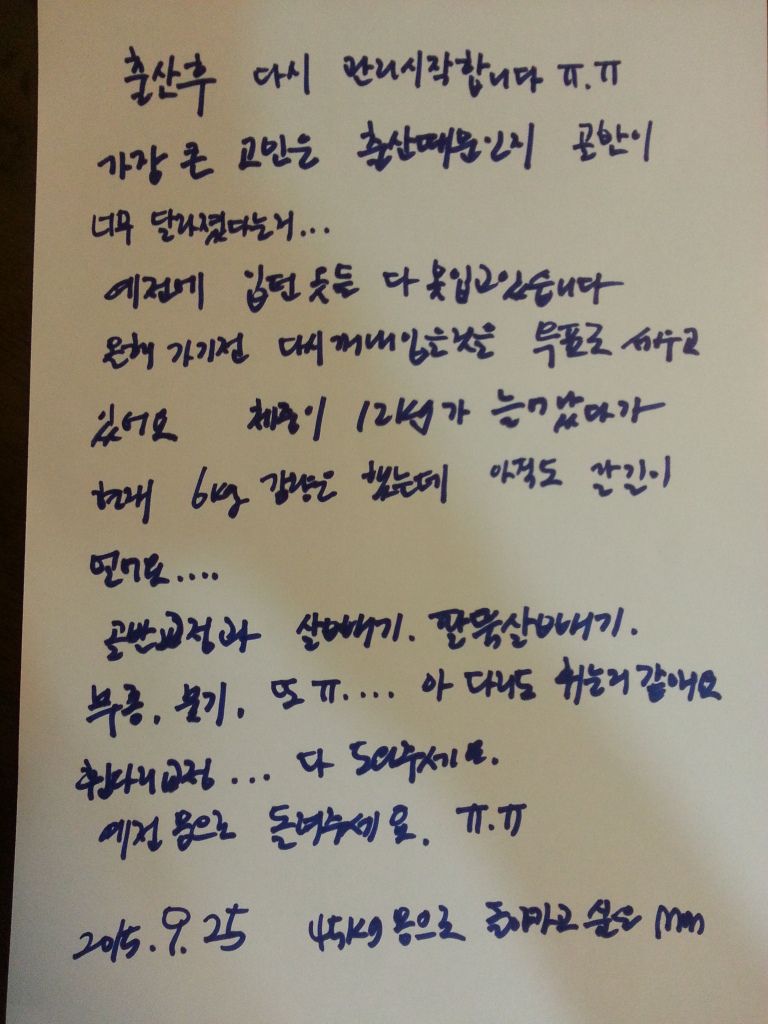 출산후 다시 관리시작합니다 ㅠ.ㅠ
가장 큰 고민은 출산때문인지 골반이
너무 달라졌다는거...
예전에 입던 옷들 다 못입고있습니다
올해 가기전 다시 꺼내입는것을 목표로 세우고
있어요 체중이 12kg가 늘어났다가
현재 6kg 감량은 했는데 아직도 갈길이
멀어요....
골반교정과 살빼기. 팔뚝살빼기.
부종, 붓기, 또 ㅠ.... 아 다리도 휘는거 같애요
휜다리교정... 다 도와주세요.
예전 몸으로 돌려주세요. ㅠ.ㅠ
2015. 9. 25 45kg 몸으로 돌아가고 싶은